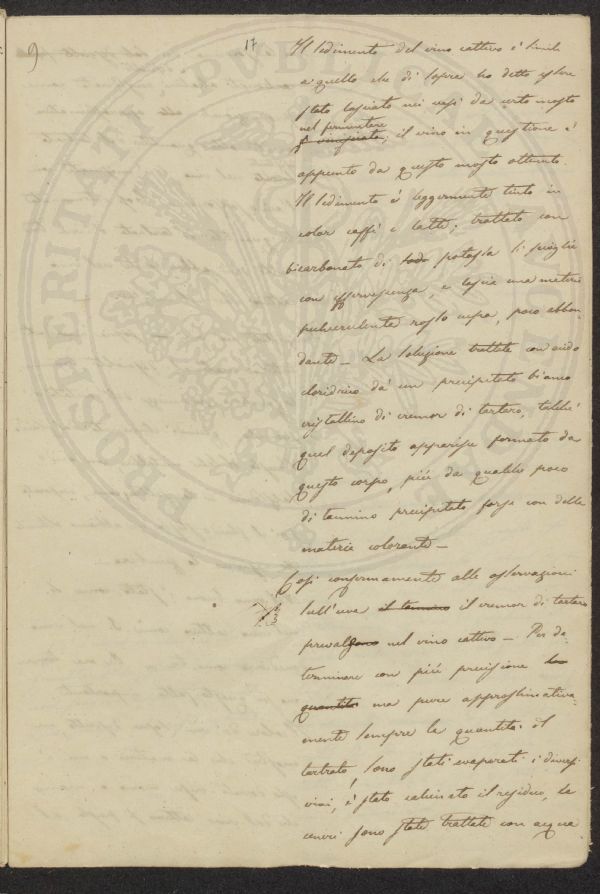 9
17
Il sedimento del vino cattivo è simile
a quello che di sopra ho detto essere
stato lasciato nei vasi da certo mosto
nel fermentare
; il vino in questione è
appunto da questo mosto ottenuto.
Il sedimento è leggermente tinto in
color caffè e latte; trattato con
bicarbonato di soda potassa si scioglie
con effervescenza, e lascia una materia
pulverulenta rosso cupa, poco abbon-
dante – La soluzione trattata con acido
cloridrico dà un precipitato bianco
cristallino di cremor di tartaro, talché
quel deposito apparisce formato da
questo corpo, più da qualche poco
di tannino precipitato forse con delle
materie coloranti –
Così conformemente alle osservazioni
sull'uva il tannino il cremor di tartaro
prevalgono nel vino cattivo – Per de-
terminare con più precisione la
quantità ma pure approssimativa-
mente sempre la quantità del
tartrato, sono stati evaporati i diversi
vini, è stato calcinato il residuo, le
ceneri sono state trattate con acqua
PROSPERITATI PUBLICAE